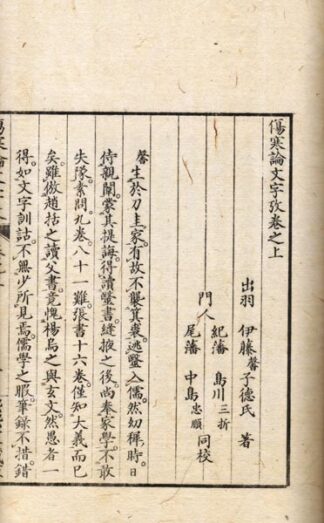 傷寒論文字攷卷之上
出羽 伊藤馨子德氏 著
門人
紀藩 島川三折
尾藩 中島忠順
同校
馨生於刀圭家。有故不襲其裘。逃毉入儒。然幼穉時。日
侍親闈。嘗其提誨。得讀毉書。縫掖之後。尚奉家學。不敢
失隊。素問。九卷。八十一難。張書十六卷。僅知大義而已
矣。雖倣趙括之讀父書。竟愧楊烏之與玄文。然愚者一
得。如文字訓詁。不無少所見焉。儒學之暇。筆錄不措。錯